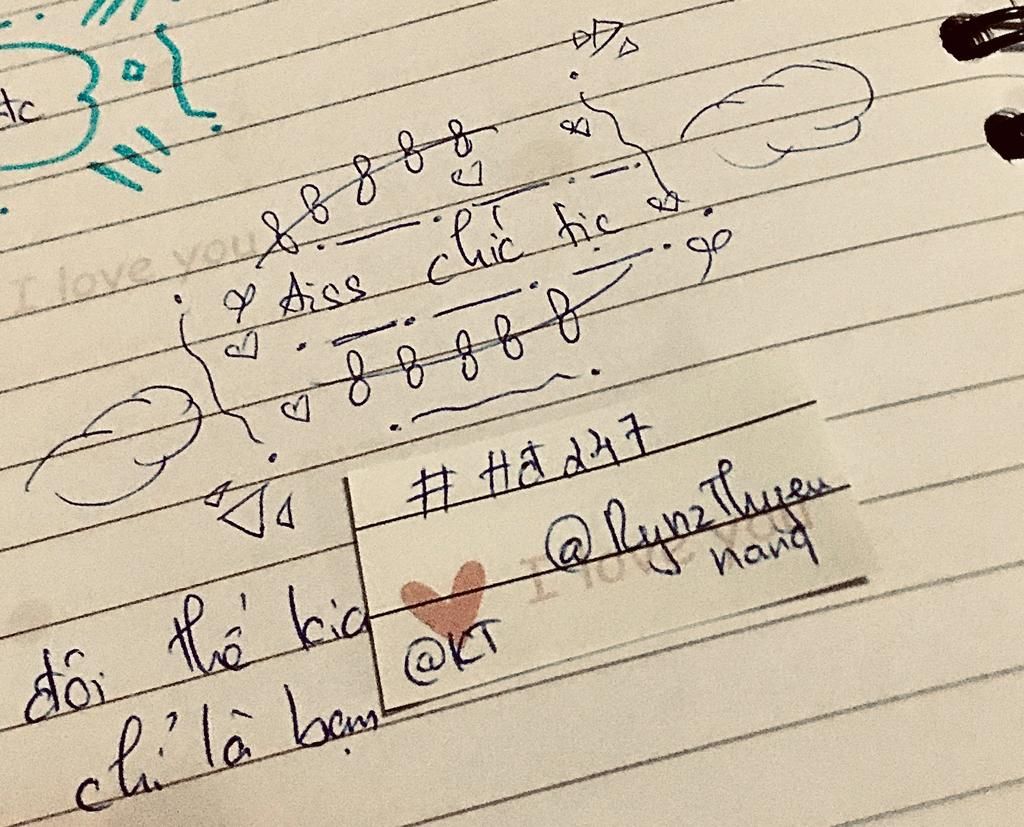 tc
I love you
Aiss chíc tịc
# Hđ d247
@RynzThuyen
nang
I love you
@KT
đôi thế kia
chỉ là bạn